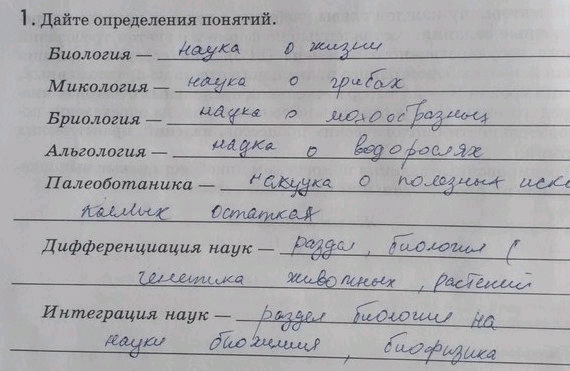 1. Дайте определения понятий.
Биология — наука о жизни
Микология — наука о грибах
Бриология — наука о мохообразных
Альгология — наука о водорослях
Палеоботаника — наука о полезных иско
каемых остатках
Дифференциация наук — раздел, биология (
генетика животных, растений
Интеграция наук — раздел биологии на
науки биохимия, биофизика